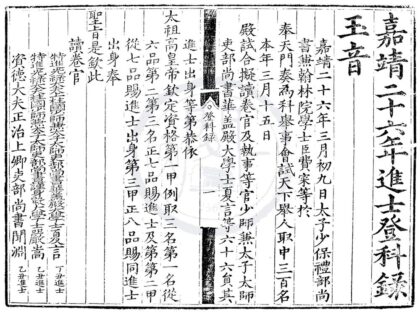 嘉靖二十六年進士登科錄
玉音
嘉靖二十六年三月初九日太子少保禮部尚
書兼翰林院學士臣費寀等於
奉天門奏為科舉事會試天下舉人取中三百名
本年三月十五日
殿試合擬讀卷官及執事等官少師兼太子太師
吏部尚書華蓋殿大學士夏言等六十六員其
進士出身等第恭依
太祖高皇帝欽定資格第一甲例取三名第一名從
六品第二第三名正七品賜進士及第第二甲
從七品賜進士出身第三甲正八品賜同進士
出身奉
聖旨是欽此
讀卷官
資德大夫正治上卿吏部尚書聞淵 乙丑進士
登科錄
一